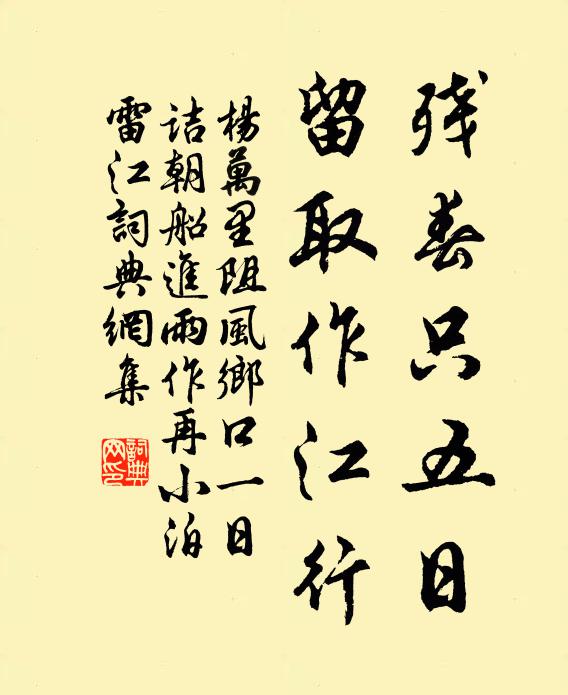 残春只五日
留取作江行
楊萬里阻風鄉口一日
詰朝船進雨作再小泊
雷江詞典網集
詞典網印